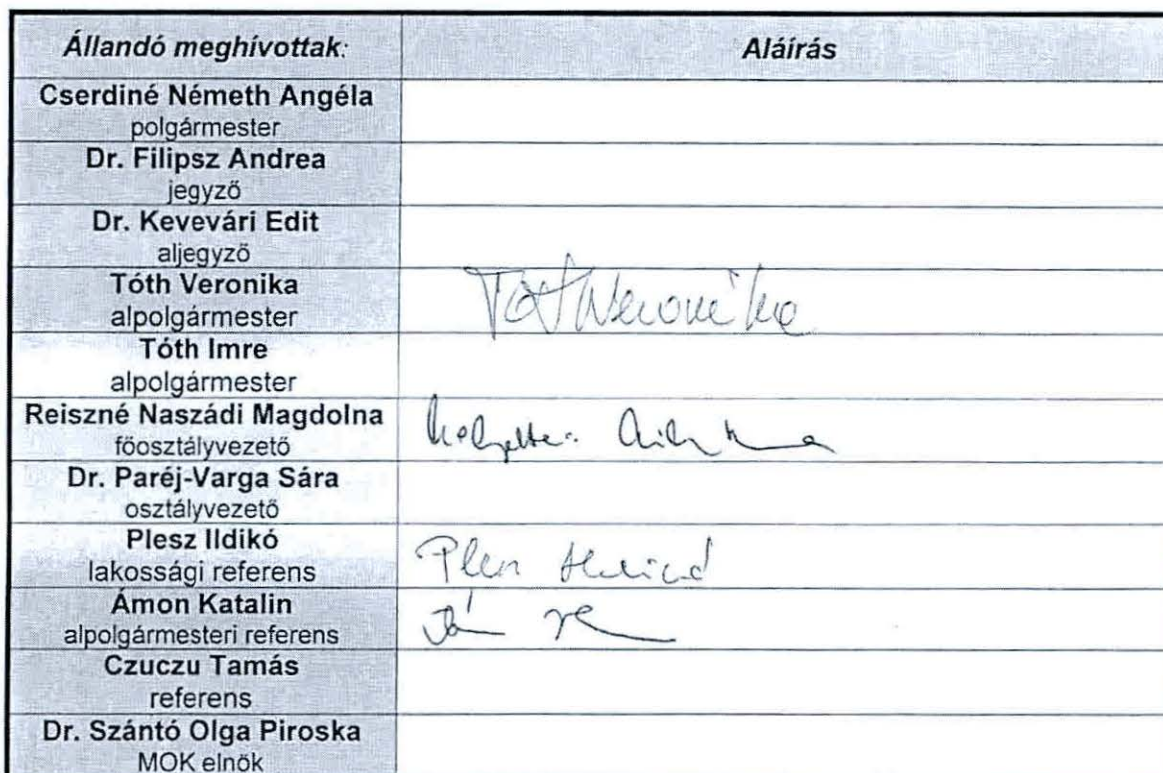 Állandó meghívottak: Aláírás
Cserdiné Németh Angéla
polgármester
Dr. Filipsz Andrea
jegyző
Dr. Kevevári Edit
aljegyző
Tóth Veronika
alpolgármester
Tóth Veronika
Tóth Imre
alpolgármester
Reiszné Naszádi Magdolna
főosztályvezető
helyettes:
Dr. Paréj-Varga Sára
osztályvezető
Plesz Ildikó
lakossági referens
Plesz Ildikó
Ámon Katalin
alpolgármesteri referens
Czuczu Tamás
referens
Dr. Szántó Olga Piroska
MOK elnök